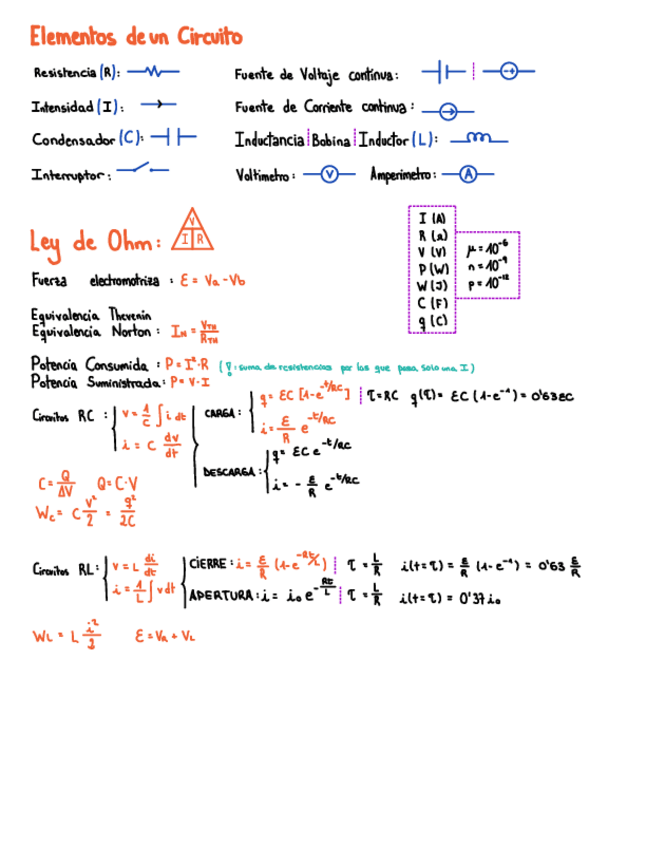 Elementos de un Circuito
Resistencia (R):
Fuente de Voltaje continua:
Intensidad (I):
Fuente de Corriente continua:
Condensador (C):
Inductancia | Bobina | Inductor (L):
Interruptor:
Voltimetro: V Amperimetro: A
Ley de Ohm: V I R
I (A)
R (Ω)
V (V)
P (W)
W (J)
C (F)
q (C)
μ = 10^-6
n = 10^-9
p = 10^-12
Fuerza electromotriza : ε = Va - Vb
Equivalencia Thevenin
Equivalencia Norton : I_N = V_TH / R_TH
Potencia Consumida : P = I²·R ( : suma de resistencias por los que pasa solo una I)
Potencia Suministrada : P = V·I
Circuitos RC : V = 1/C ∫ i dt
i = C dv/dt
CARGA : q = εC [1-e^-t/RC] | τ = RC q(τ) = εC (1-e^-1) = 0'63εC
i = ε/R e^-t/RC
DESCARGA : q = εC e^-t/RC
i = - ε/R e^-t/RC
C = Q/ΔV Q = C·V
Wc = C V²/2 = q²/2C
Circuitos RL : V = L di/dt
i = 1/L ∫ v dt
CIERRE : i = ε/R (1-e^-Rt/L) | τ = L/R i(t=τ) = ε/R (1-e^-1) = 0'63 ε/R
APERTURA : i = i₀e^-Rt/L | τ = L/R i(t=τ) = 0'37 i₀
W_L = L i²/2 ε = V_R + V_L